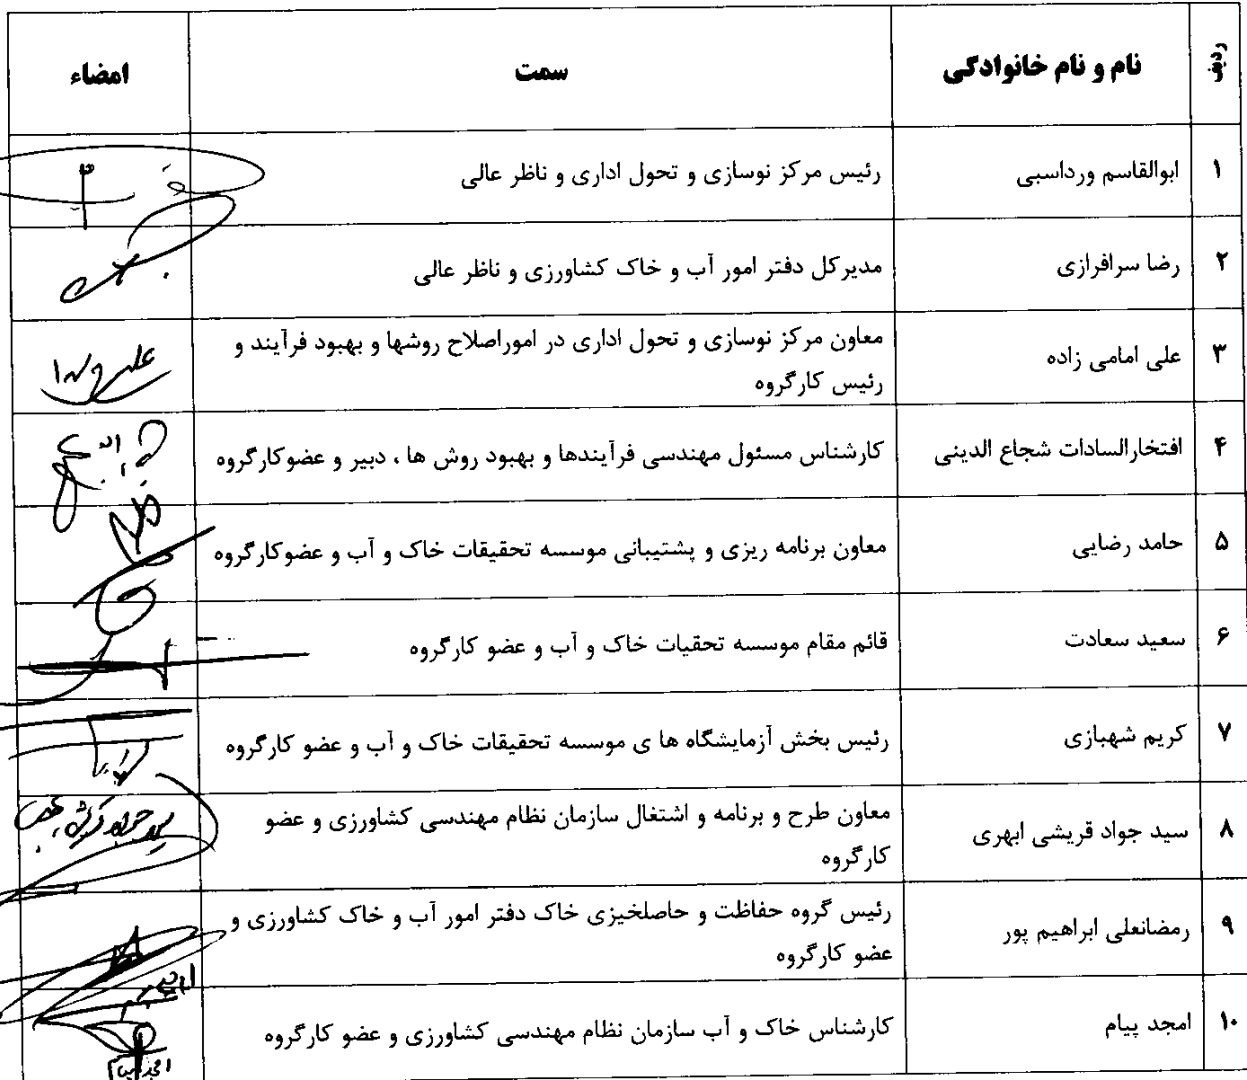 ردیف نام و نام خانوادگی سمت امضاء
۱ ابوالقاسم ورداسبی رئیس مرکز نوسازی و تحول اداری و ناظر عالی
۲ رضا سرافرازی مدیرکل دفتر امور آب و خاک کشاورزی و ناظر عالی
۳ علی امامی زاده معاون مرکز نوسازی و تحول اداری در اموراصلاح روشها و بهبود فرآیند و
رئیس کارگروه
۴ افتخارالسادات شجاع الدینی کارشناس مسئول مهندسی فرآیندها و بهبود روش ها ، دبیر و عضوکارگروه
۵ حامد رضایی معاون برنامه ریزی و پشتیبانی موسسه تحقیقات خاک و آب و عضوکارگروه
۶ سعید سعادت قائم مقام موسسه تحقیات خاک و آب و عضو کارگروه
۷ کریم شهبازی رئیس بخش آزمایشگاه ها ی موسسه تحقیقات خاک و آب و عضو کارگروه
۸ سید جواد قریشی ابهری معاون طرح و برنامه و اشتغال سازمان نظام مهندسی کشاورزی و عضو
کارگروه
۹ رمضانعلی ابراهیم پور رئیس گروه حفاظت و حاصلخیزی خاک دفتر امور آب و خاک کشاورزی و
عضو کارگروه
۱۰ امجد پیام کارشناس خاک و آب سازمان نظام مهندسی کشاورزی و عضو کارگروه
امجد پیام